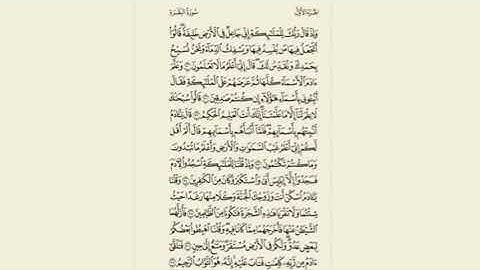 الجزء الأول
سورة البقرة
وَإِذْ قَالَ رَبُّكَ لِلْمَلَٰٓئِكَةِ إِنِّى جَاعِلٌ فِى ٱلْأَرْضِ خَلِيفَةً قَالُوٓا۟
أَتَجْعَلُ فِيهَا مَن يُفْسِدُ فِيهَا وَيَسْفِكُ ٱلدِّمَآءَ وَنَحْنُ نُسَبِّحُ
بِحَمْدِكَ وَنُقَدِّسُ لَكَ قَالَ إِنِّىٓ أَعْلَمُ مَا لَا تَعْلَمُونَ ٣٠ وَعَلَّمَ
ءَادَمَ ٱلْأَسْمَآءَ كُلَّهَا ثُمَّ عَرَضَهُمْ عَلَى ٱلْمَلَٰٓئِكَةِ فَقَالَ
أَنۢبِـُٔونِى بِأَسْمَآءِ هَٰٓؤُلَآءِ إِن كُنتُمْ صَٰدِقِينَ ٣١ قَالُوا۟ سُبْحَٰنَكَ
لَا عِلْمَ لَنَآ إِلَّا مَا عَلَّمْتَنَآ إِنَّكَ أَنتَ ٱلْعَلِيمُ ٱلْحَكِيمُ ٣٢ قَالَ يَٰٓـَٔادَمُ
أَنۢبِئْهُم بِأَسْمَآئِهِمْ فَلَمَّآ أَنۢبَأَهُم بِأَسْمَآئِهِمْ قَالَ أَلَمْ أَقُل
لَّكُمْ إِنِّىٓ أَعْلَمُ غَيْبَ ٱلسَّمَٰوَٰتِ وَٱلْأَرْضِ وَأَعْلَمُ مَا تُبْدُونَ
وَمَا كُنتُمْ تَكْتُمُونَ ٣٣ وَإِذْ قُلْنَا لِلْمَلَٰٓئِكَةِ ٱسْجُدُوا۟ لِـَٔادَمَ
فَسَجَدُوٓا۟ إِلَّآ إِبْلِيسَ أَبَىٰ وَٱسْتَكْبَرَ وَكَانَ مِنَ ٱلْكَٰفِرِينَ ٣٤ وَقُلْنَا
يَٰٓـَٔادَمُ ٱسْكُنْ أَنتَ وَزَوْجُكَ ٱلْجَنَّةَ وَكُلَا مِنْهَا رَغَدًا حَيْثُ
شِئْتُمَا وَلَا تَقْرَبَا هَٰذِهِ ٱلشَّجَرَةَ فَتَكُونَا مِنَ ٱلظَّٰلِمِينَ ٣٥ فَأَزَلَّهُمَا
ٱلشَّيْطَٰنُ عَنْهَا فَأَخْرَجَهُمَا مِمَّا كَانَا فِيهِ وَقُلْنَا ٱهْبِطُوا۟ بَعْضُكُمْ
لِبَعْضٍ عَدُوٌّ وَلَكُمْ فِى ٱلْأَرْضِ مُسْتَقَرٌّ وَمَتَٰعٌ إِلَىٰ حِينٍ ٣٦ فَتَلَقَّىٰٓ
ءَادَمُ مِن رَّبِّهِۦ كَلِمَٰتٍ فَتَابَ عَلَيْهِ إِنَّهُۥ هُوَ ٱلتَّوَّابُ ٱلرَّحِيمُ ٣٧